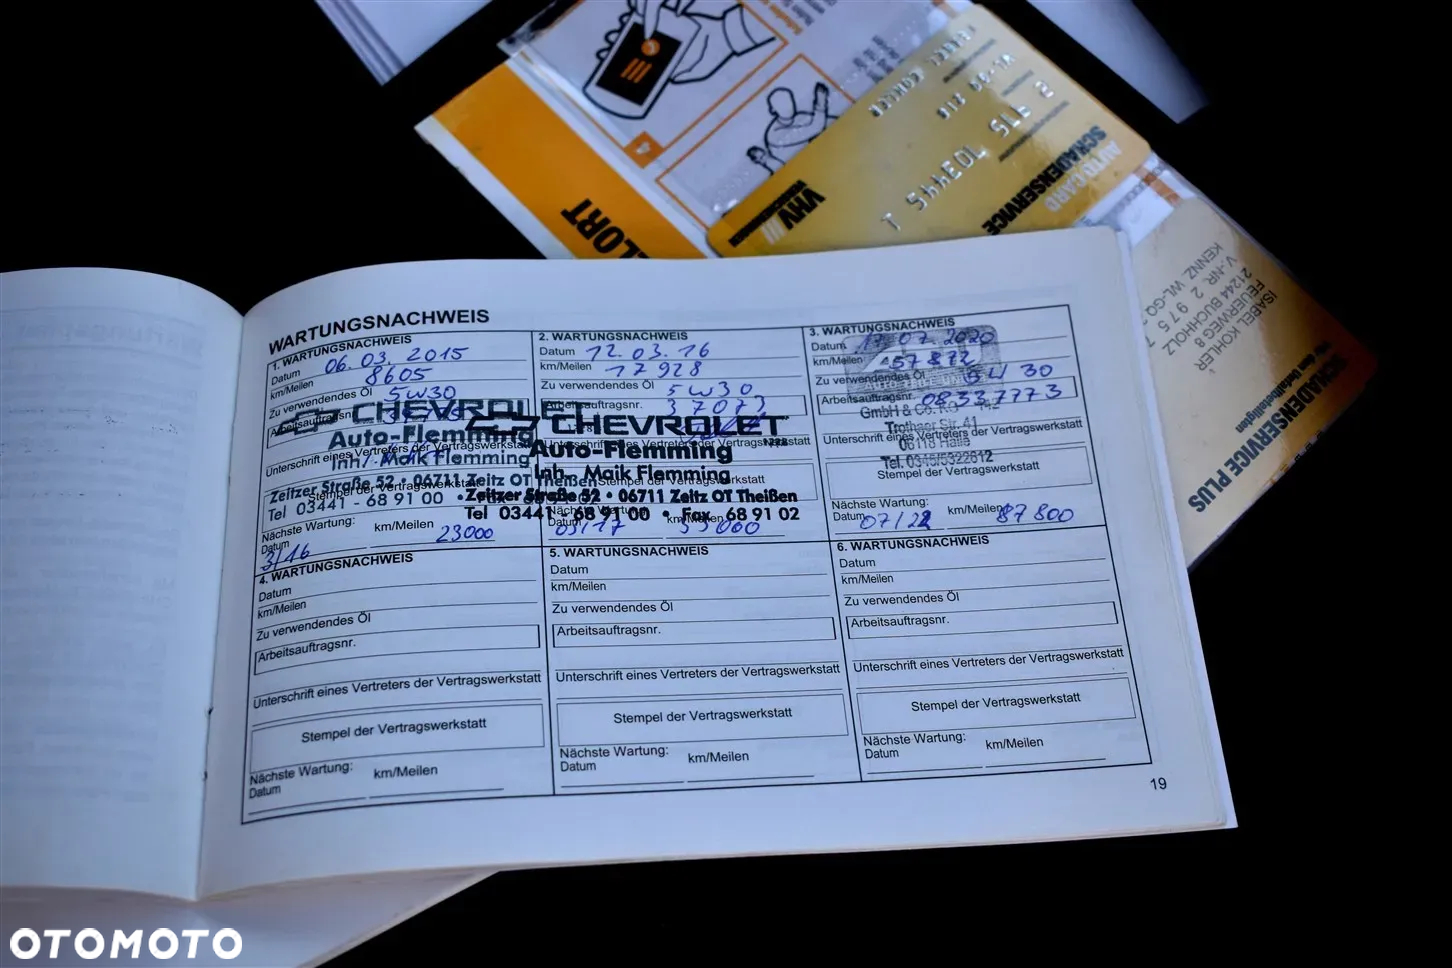 VHV
VERSICHERUNGEN
AUTO CARD
SCHADENSERVICE
SCHADENSERVICE PLUS
ISABEL KOHLER
FEUERWEG 8
21244 BUCHHOLZ
WARTUNGSNACHWEIS
1. WARTUNGSNACHWEIS
Datum 06.03.2015
km/Meilen 8605
Zu verwendendes Öl 5W30
Arbeitsauftragsnr.
CHEVROLET
Auto-Flemming
Inh. Maik Flemming
Unterschrift eines Vertreters der Vertragswerkstatt
Zeitzer Straße 52 • 06711 Zeitz OT Theißen
Tel 03441 - 68 91 00 •
Nächste Wartung: km/Meilen
Datum 3/16 23000
2. WARTUNGSNACHWEIS
Datum 12.03.16
km/Meilen 17928
Zu verwendendes Öl 5W30
Arbeitsauftragsnr.
CHEVROLET
Unterschrift eines Vertreters der Vertragswerkstatt
Auto-Flemming
Inh. Maik Flemming
Stempel der Vertragswerkstatt
Zeitzer Straße 52 • 06711 Zeitz OT Theißen
Tel 03441 - 68 91 00 • Fax 68 91 02
Datum 03/17
3. WARTUNGSNACHWEIS
Datum 17.07.2020
km/Meilen 57872
Zu verwendendes Öl 5W30
Arbeitsauftragsnr. 08337773
GmbH & Co. KG
Trothaer Str. 41
06118 Halle
Unterschrift eines Vertreters der Vertragswerkstatt
Tel. 0345/5322812
Stempel der Vertragswerkstatt
Nächste Wartung:
Datum 07/22 km/Meilen 87800
4. WARTUNGSNACHWEIS
Datum
km/Meilen
Zu verwendendes Öl
Arbeitsauftragsnr.
Unterschrift eines Vertreters der Vertragswerkstatt
Stempel der Vertragswerkstatt
Nächste Wartung:
Datum km/Meilen
5. WARTUNGSNACHWEIS
Datum
km/Meilen
Zu verwendendes Öl
Arbeitsauftragsnr.
Unterschrift eines Vertreters der Vertragswerkstatt
Stempel der Vertragswerkstatt
Nächste Wartung:
Datum km/Meilen
6. WARTUNGSNACHWEIS
Datum
km/Meilen
Zu verwendendes Öl
Arbeitsauftragsnr.
Unterschrift eines Vertreters der Vertragswerkstatt
Stempel der Vertragswerkstatt
Nächste Wartung:
Datum km/Meilen
19
OTOMOTO